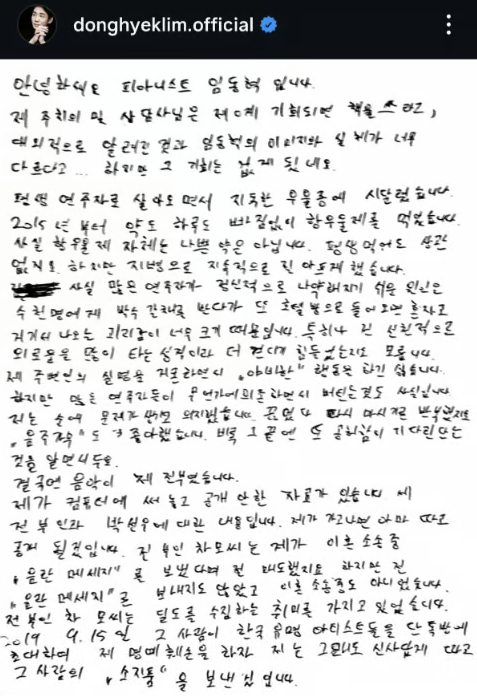 donghyeklim.official
안녕하세요 피아니스트 임동혁 입니다.
제 주치의 및 상담사님은 제게 기회되면 책을 쓰라고,
대외적으로 알려진것과 임동혁의 이미지와 실체가 너무
다르다고... 하지만 그 기회는 없게 됬네요.
평생 연주자로 살아오면서 지독한 우울증에 시달렸습니다.
2015년부터 약도 하루도 빠짐없이 항우울제를 먹었습니다.
사실 항우울제 자체는 나쁜 약은 아닙니다. 평생먹어도 상관
없지요. 하지만 지병으로 지속적으로 진 아프게 했습니다.
사실 많은 연주자가 정신적으로 나약해지기 쉬운 원인은
수천명에게 박수 갈채를 받다가 또 호텔방으로 들어오면 혼자고
거기서 나오는 괴리감이 너무 크기 때문입니다. 특히나 전 선천적으로
외로움을 많이 타는 성격이라 더 견디기 힘들었는지도 모릅니다.
제 주변인의 실명을 거론하면서 „야비한" 행동은 하긴 싫습니다.
하지만 많은 연주자들이 무언가에 의존하면서 버티는것도 사실입니다.
저는 술에 문제가 의지했습니다. 끊었다 다시 마시기를 반복했지요
„음주가무"도 좋아했습니다. 비록 그 끝엔 또 공허함이 기다린다는
것을 알면서두요.
결국엔 음악이 제 전부였습니다.
제가 컴퓨터에 써 놓고 공개 안한 자료가 있습니다 제
전 부인과 박선우에 대한 내용입니다. 제가 가고나면 아마 따로
공개 될것입니다. 전 부인 차모씨는 제가 이혼 소송중
„음란 메세지"를 보냈다며 절 매도했지요 하지만 전
„음란 메세지"른 보내지도 않았고 이혼 소송중도 아니었습니다.
전부인 차 모씨는 딜도를 수집하는 취미를 가지고 있었습니다.
2019 9.15일 그 사람이 한국 유명 아티스트들을 단톡방에
초대하여 제 명예훼손을 하자 저는 그래도 신사답게 따로
그 사람의 „소지품"을 보낸것 입니다.